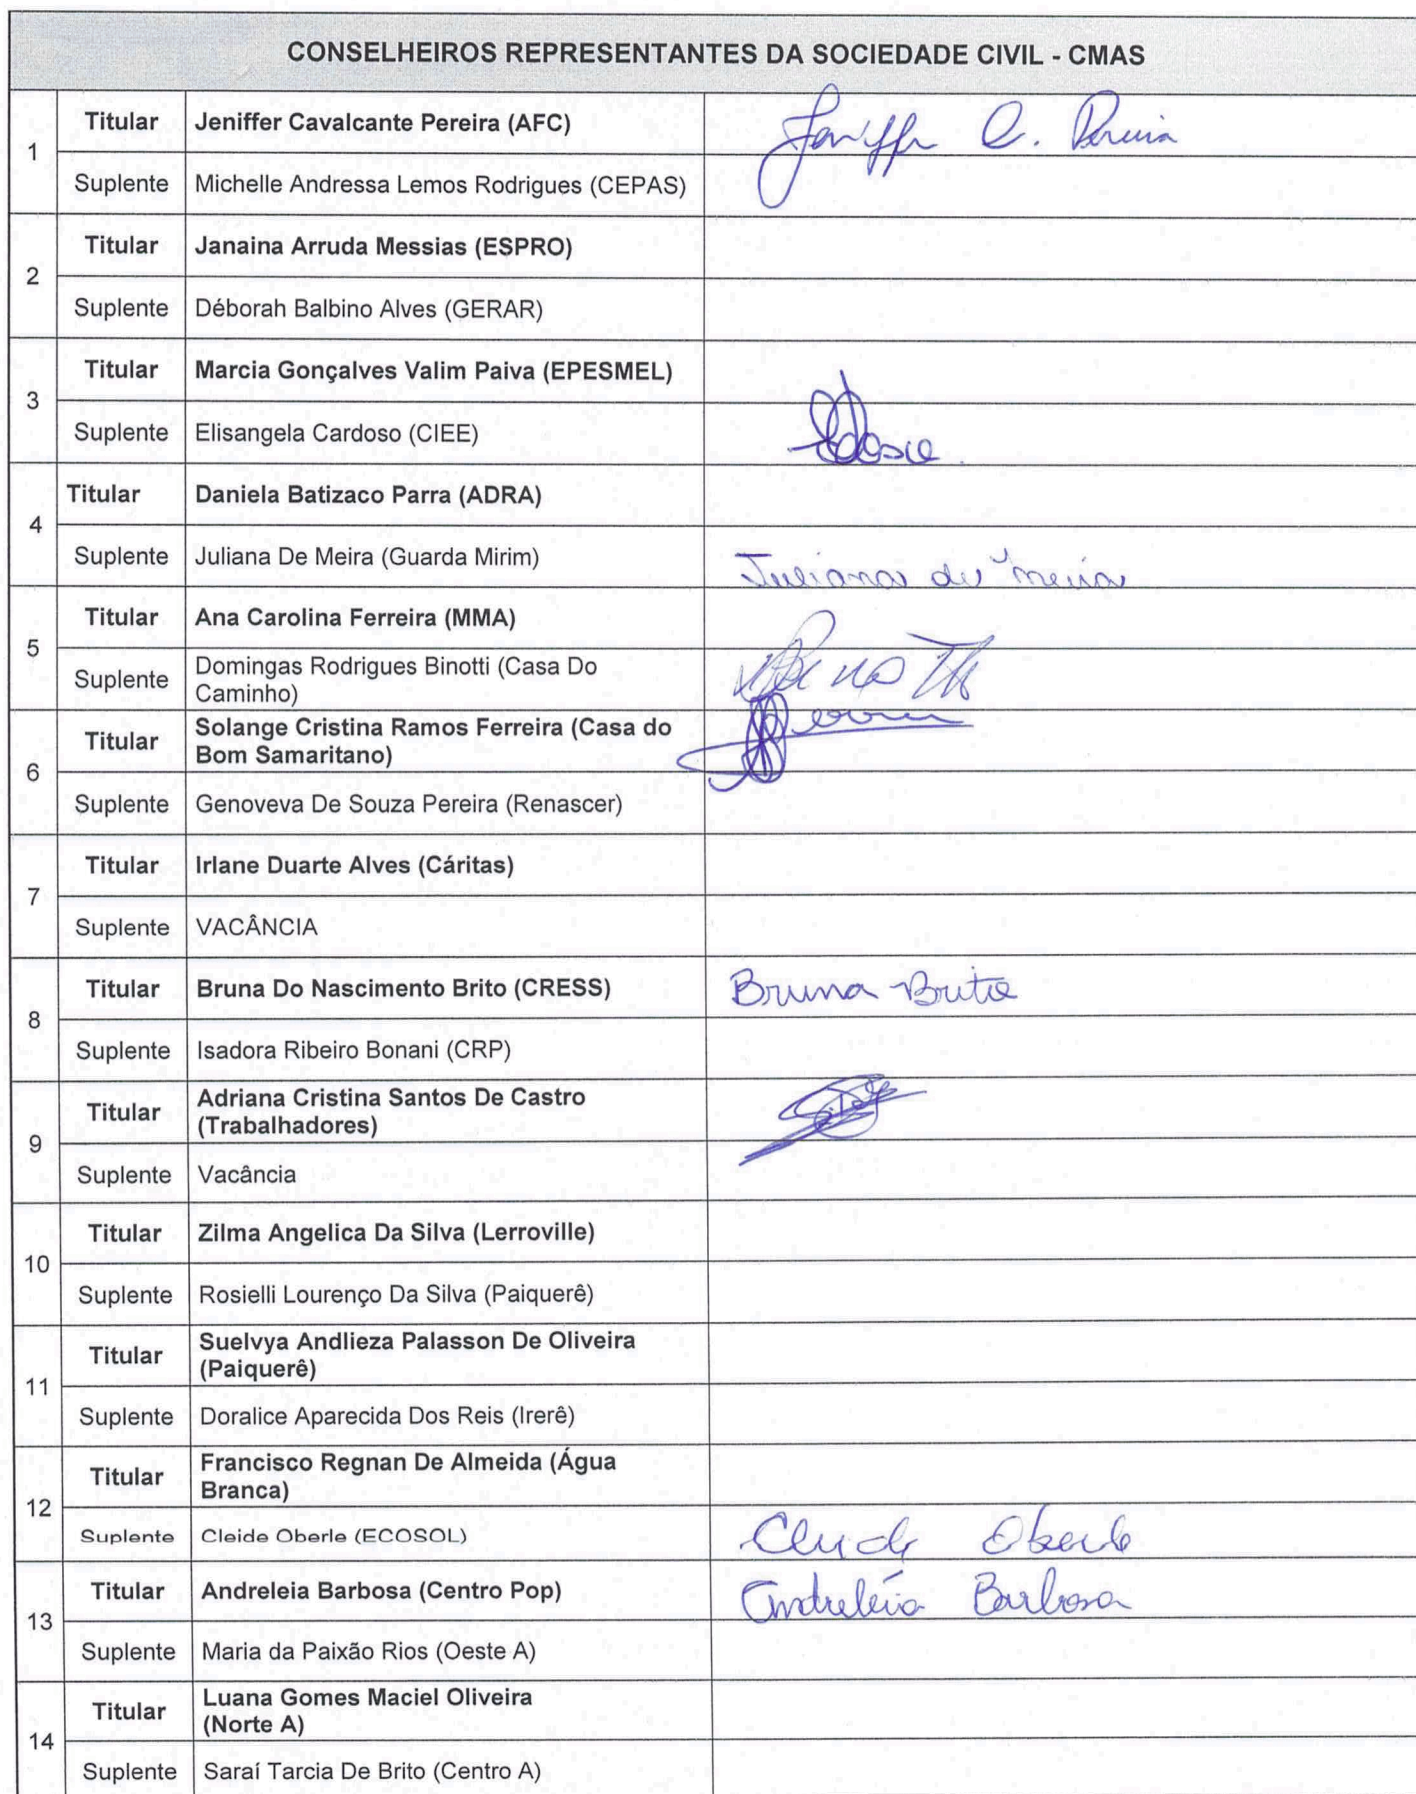 CONSELHEIROS REPRESENTANTES DA SOCIEDADE CIVIL - CMAS
1
Titular Jeniffer Cavalcante Pereira (AFC) Jeniffer C. Pereira
Suplente Michelle Andressa Lemos Rodrigues (CEPAS)
2
Titular Janaina Arruda Messias (ESPRO)
Suplente Déborah Balbino Alves (GERAR)
3
Titular Marcia Gonçalves Valim Paiva (EPESMEL)
Suplente Elisangela Cardoso (CIEE)
4
Titular Daniela Batizaco Parra (ADRA)
Suplente Juliana De Meira (Guarda Mirim) Juliana de Meira
5
Titular Ana Carolina Ferreira (MMA)
Suplente Domingas Rodrigues Binotti (Casa Do
Caminho)
6
Titular Solange Cristina Ramos Ferreira (Casa do
Bom Samaritano)
Suplente Genoveva De Souza Pereira (Renascer)
7
Titular Irlane Duarte Alves (Cáritas)
Suplente VACÂNCIA
8
Titular Bruna Do Nascimento Brito (CRESS) Bruna Brito
Suplente Isadora Ribeiro Bonani (CRP)
9
Titular Adriana Cristina Santos De Castro
(Trabalhadores)
Suplente Vacância
10
Titular Zilma Angelica Da Silva (Lerroville)
Suplente Rosielli Lourenço Da Silva (Paiquerê)
11
Titular Suelvya Andlieza Palasson De Oliveira
(Paiquerê)
Suplente Doralice Aparecida Dos Reis (Irerê)
12
Titular Francisco Regnan De Almeida (Água
Branca)
Suplente Cleide Oberle (ECOSOL) Cleide Oberle
13
Titular Andreleia Barbosa (Centro Pop) Andreléia Barbosa
Suplente Maria da Paixão Rios (Oeste A)
14
Titular Luana Gomes Maciel Oliveira
(Norte A)
Suplente Saraí Tarcia De Brito (Centro A)